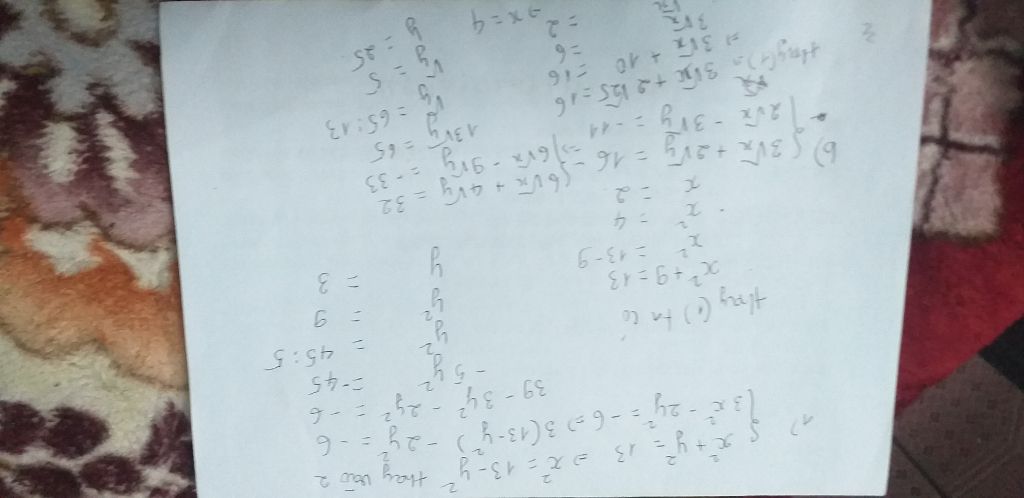 1) { x² + y² = 13 ⇒ x² = 13 - y² thay vào 2
{ 3x² - 2y² = -6 ⇒ 3(13 - y²) - 2y² = -6
39 - 3y² - 2y² = -6
- 5y² = -45
y² = 45 : 5
y² = 9
y = 3
thay (1) ta có
x² + 9 = 13
x² = 13 - 9
x² = 4
x = 2
b) { 3√x + 2√y = 16 = { 6√x + 4√y = 32
{ 2√x - 3√y = -11 => { 6√x - 9√y = -33
13√y = 65
√y = 65 : 13
√y = 5
y = 25
thay (1) =
3√x + 2√25 = 16
⇒ 3√x + 10 = 16
3√x = 6
√x = 2 ⇒ x = 4